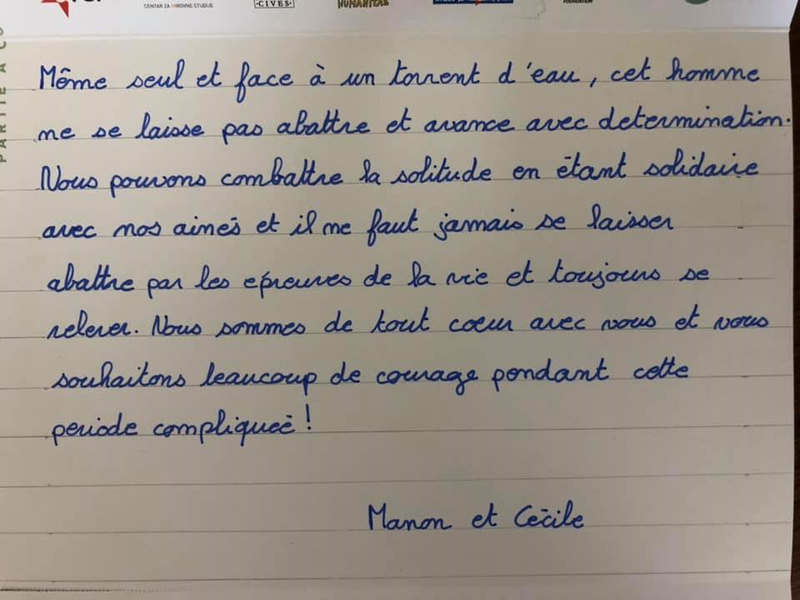 CENTAR ZA MIROVNE STUDIJE
CIVES
HUMANITAS
FOUNDATION
PARTIE À CO
Même seul et face à un torrent d'eau, cet homme
ne se laisse pas abattre et avance avec determination.
Nous pouvons combattre la solitude en étant solidaire
avec nos ainés et il ne faut jamais se laisser
abattre par les epreuves de la vie et toujours se
relever. Nous sommes de tout coeur avec vous et vous
souhaitons beaucoup de courage pendant cette
periode compliqueé !
Manon et Cécile